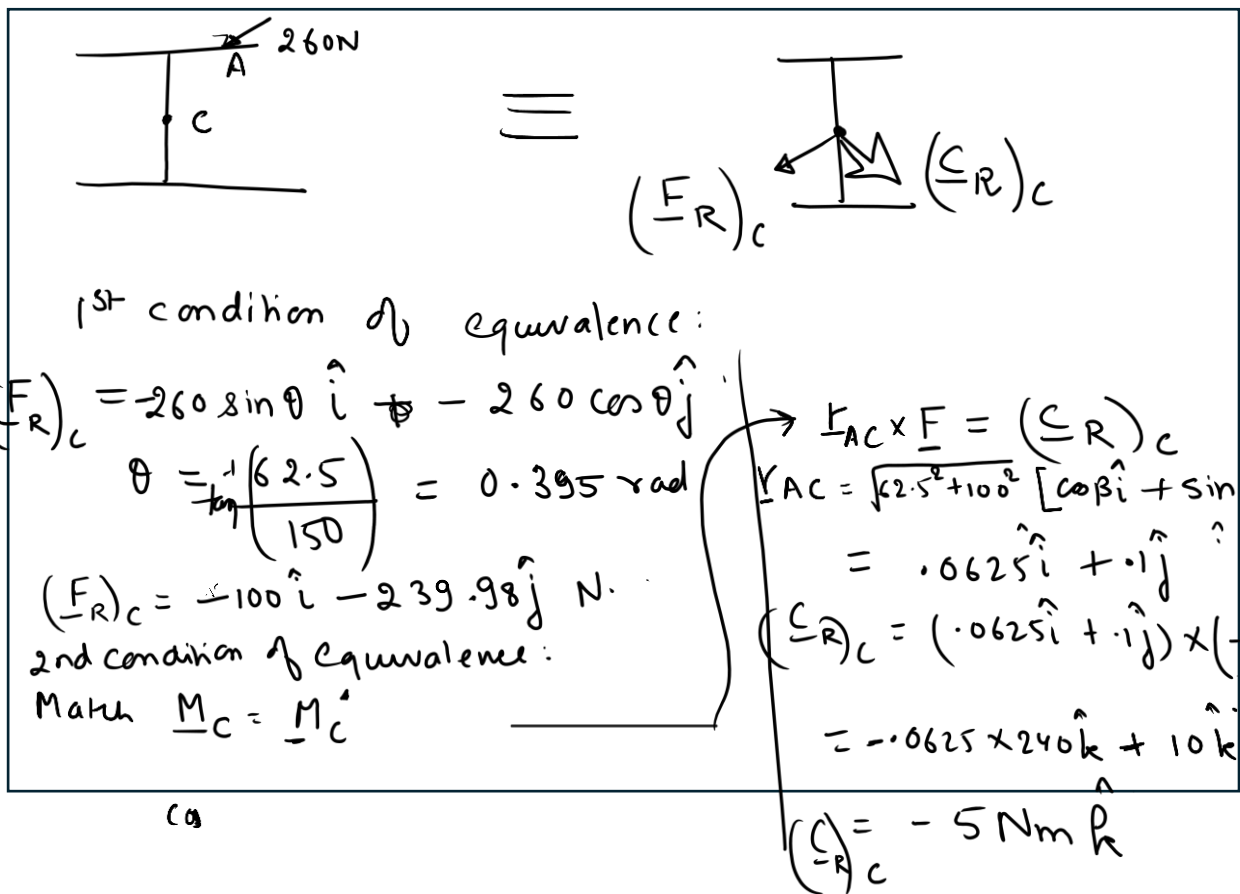 260N
A
C
≡
(F_R)_C
(C_R)_C
1st condition of equivalence:
F_R)_C = -260 sin θ î - 260 cos θ ĵ
θ = tan⁻¹(62.5/150) = 0.395 rad
(F_R)_C = -100 î - 239.98 ĵ N.
2nd condition of equivalence:
Match M_C = M_C'
r_AC × F = (C_R)_C
r_AC = √62.5² + 100² [cosβ î + sin
= .0625 î + .1 ĵ
(C_R)_C = (.0625 î + .1 ĵ) × (-
= -.0625 × 240 k̂ + 10 k̂
(C_R)_C = - 5 Nm k̂